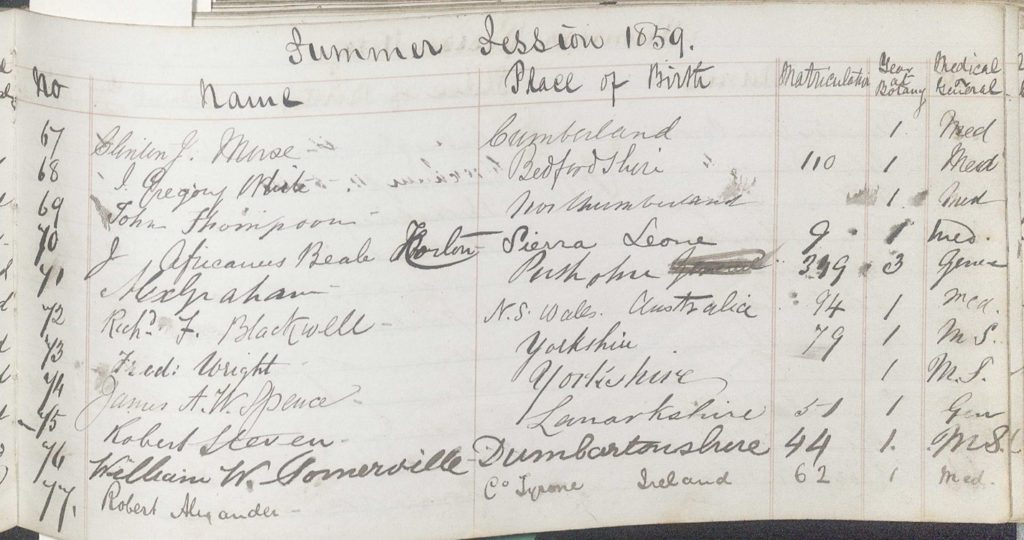 Summer Session 1859.
No Name Place of Birth Matriculation Year at Botany Medical or General
67 Clinton J. Morse Cumberland 1 Med
68 J. Gregory White Bedfordshire 110 1 Med
69 John Thompson Northumberland 1 Med
70 J Africanus Beale Horton Sierra Leone 9 1 Med.
71 Alex Graham 3 
72 Richd. F. Blackwell N.S. Wales. Australia 94 1 Med.
73 Fred: Wright Yorkshire 79 1 M.S.
74 James A.W. Spence Yorkshire 1 M.S.
75 Robert Steven Lanarkshire 51 1 Gen
76 William W. Somerville Dumbartonshire 44 1. M.S.
77. Robert Alexander Co Tyrone Ireland 62 1 Med.